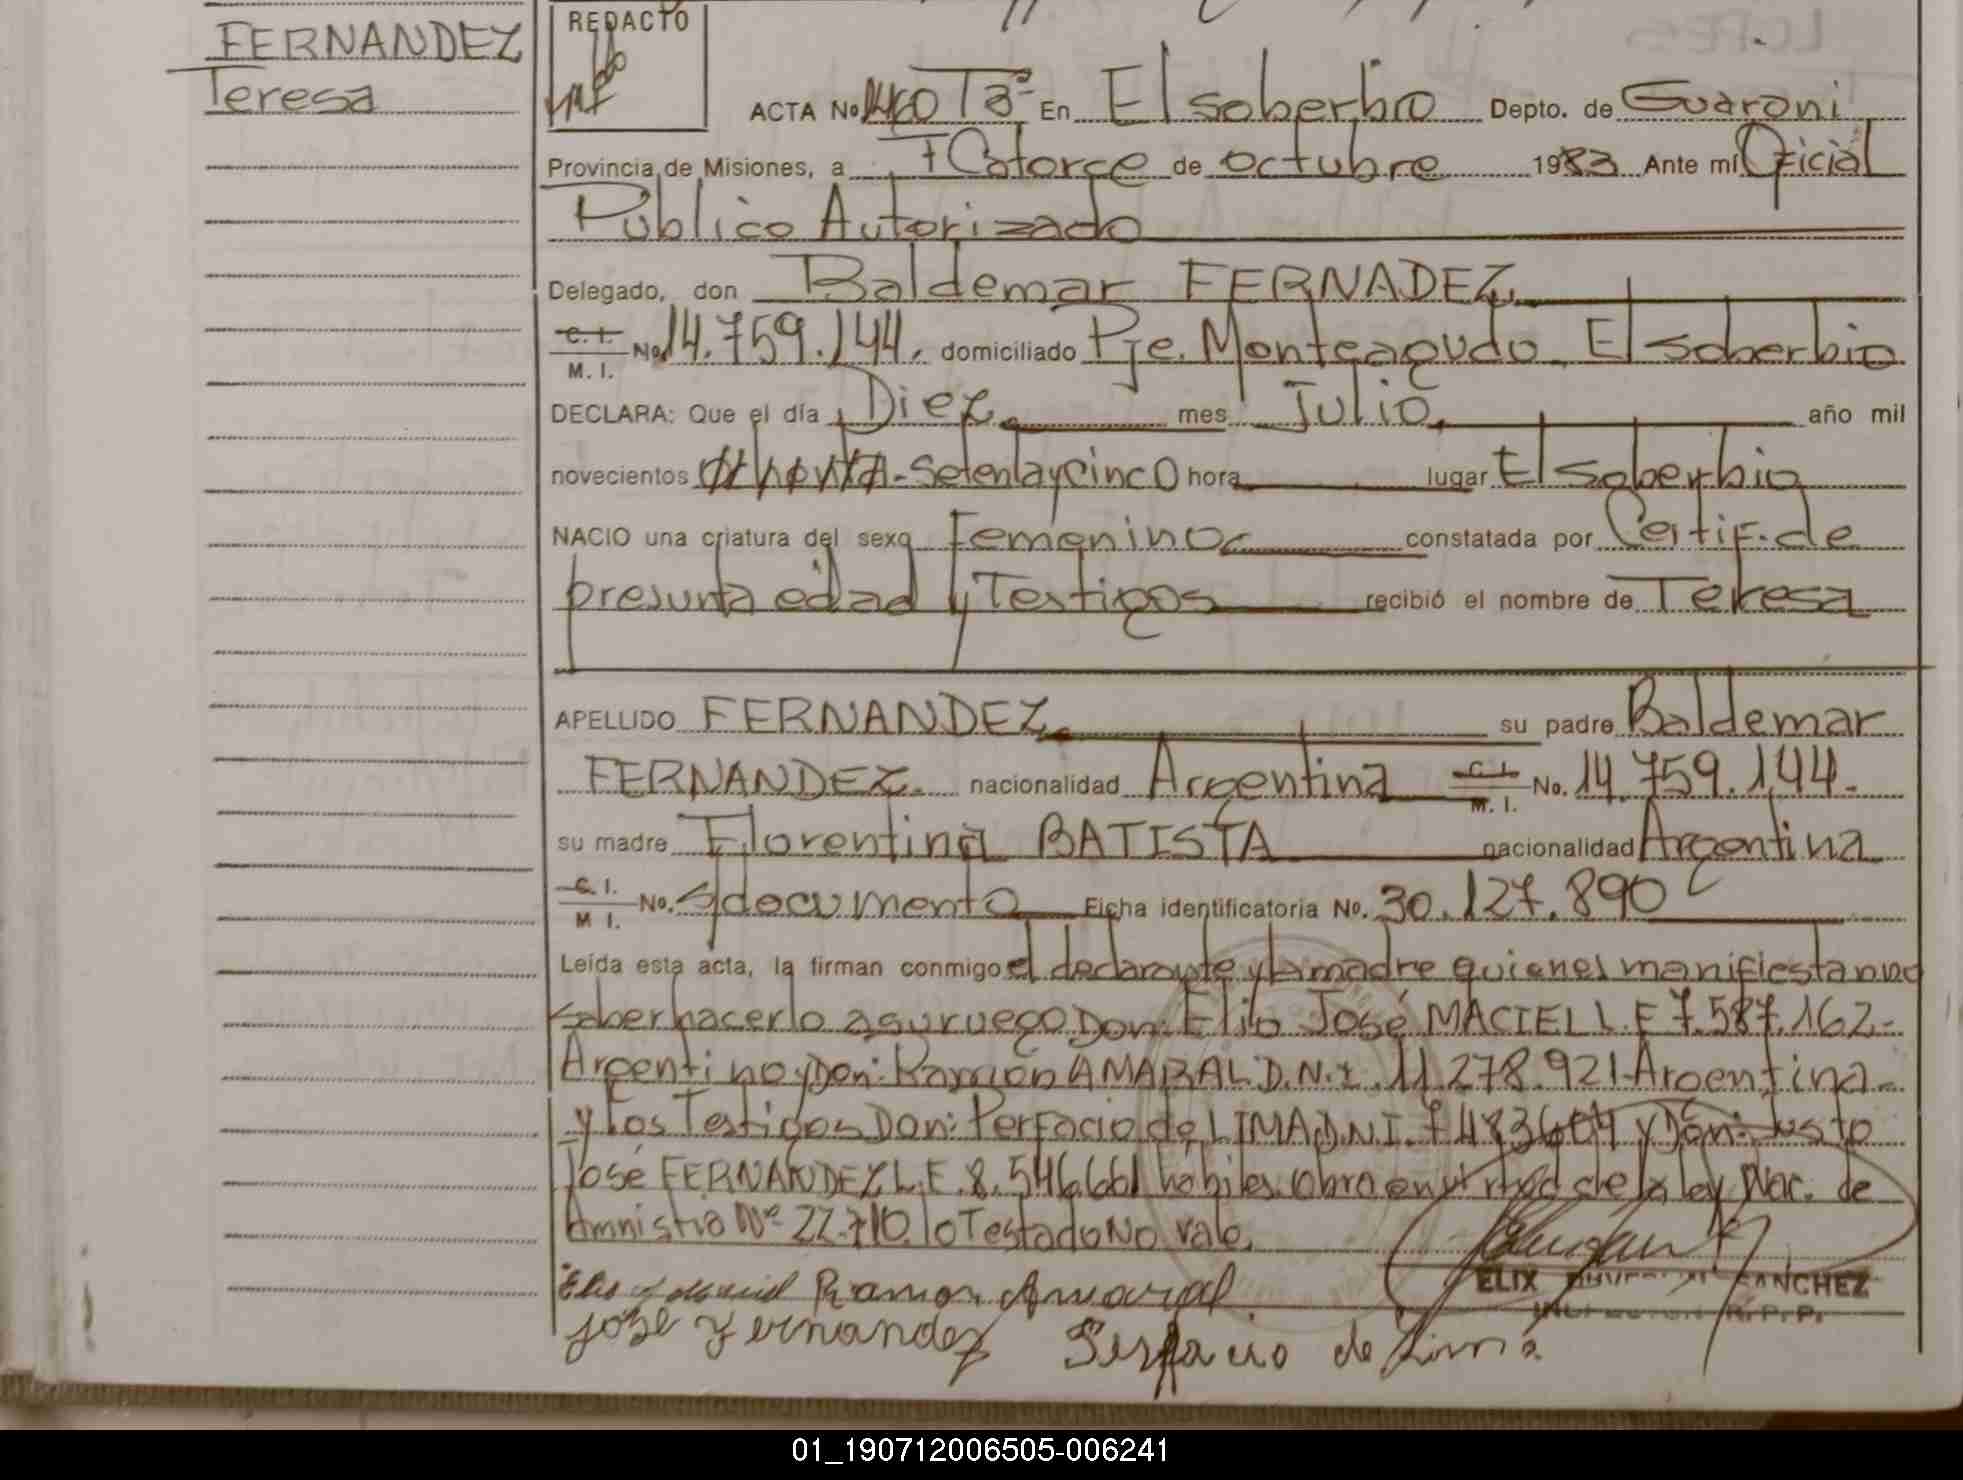 FERNANDEZ
Teresa
REDACTO
ACTA No 1440 T3º En El soberbio Depto. de Guaroni
Provincia de Misiones, a Catorce de octubre 1983 Ante mí Oficial
Publico Autorizado
Delegado, don Baldemar FERNADEZ
C. I.
M. I.
No. 14.759.144. domiciliado Pje. Monteagudo El soberbio
DECLARA: Que el día Diez mes Julio año mil
novecientos Setentaycinco hora lugar El soberbio
NACIO una criatura del sexo Femenino constatada por Certif. de
presunta edad y Testigos recibió el nombre de Teresa
APELLIDO FERNANDEZ su padre Baldemar
FERNANDEZ. nacionalidad Argentina C. I. M. I. No. 14.759.144.
su madre Florentina BATISTA nacionalidad Argentina
C. I. M I. No. S/documento Ficha identificatoria No. 30.127.890
Leída esta acta, la firman conmigo el declarante y la madre quienes manifiestan no
saber hacerlo a su ruego Don: Elio José MACIEL L.E 7.587.162-
Argentino y Don: Ramón AMARAL D.N.I. 11.278.921-Argentina-
y Los Testigos Don: Perfacio de LIMA D.N.I. y Don: Justo
José FERNANDEZ L.E. 8.546.661 habiles. obra en virtud de la ley Nac. de
Amnistia Nº 22.710. lo Testado No vale.
Ramon Amaral
José Fernandez Perfacio de Lima
ELIX SANCHEZ
R.P.P.
01_190712006505-006241